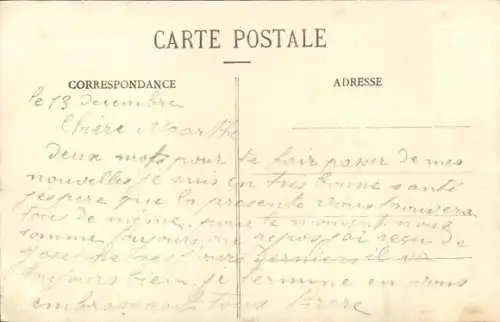 CARTE POSTALE
CORRESPONDANCE
ADRESSE
le 13 decembre
Chère Marthe
deux mots pour te fair passer de mes
nouvelles je suis en tres bonne santé
jespere que la presente vous trouvera
tous de même pour le moment nous
somme toujours au repos jai reçu de
tres jours derniers il va
toujours bien je termine en vous
embrassant tous